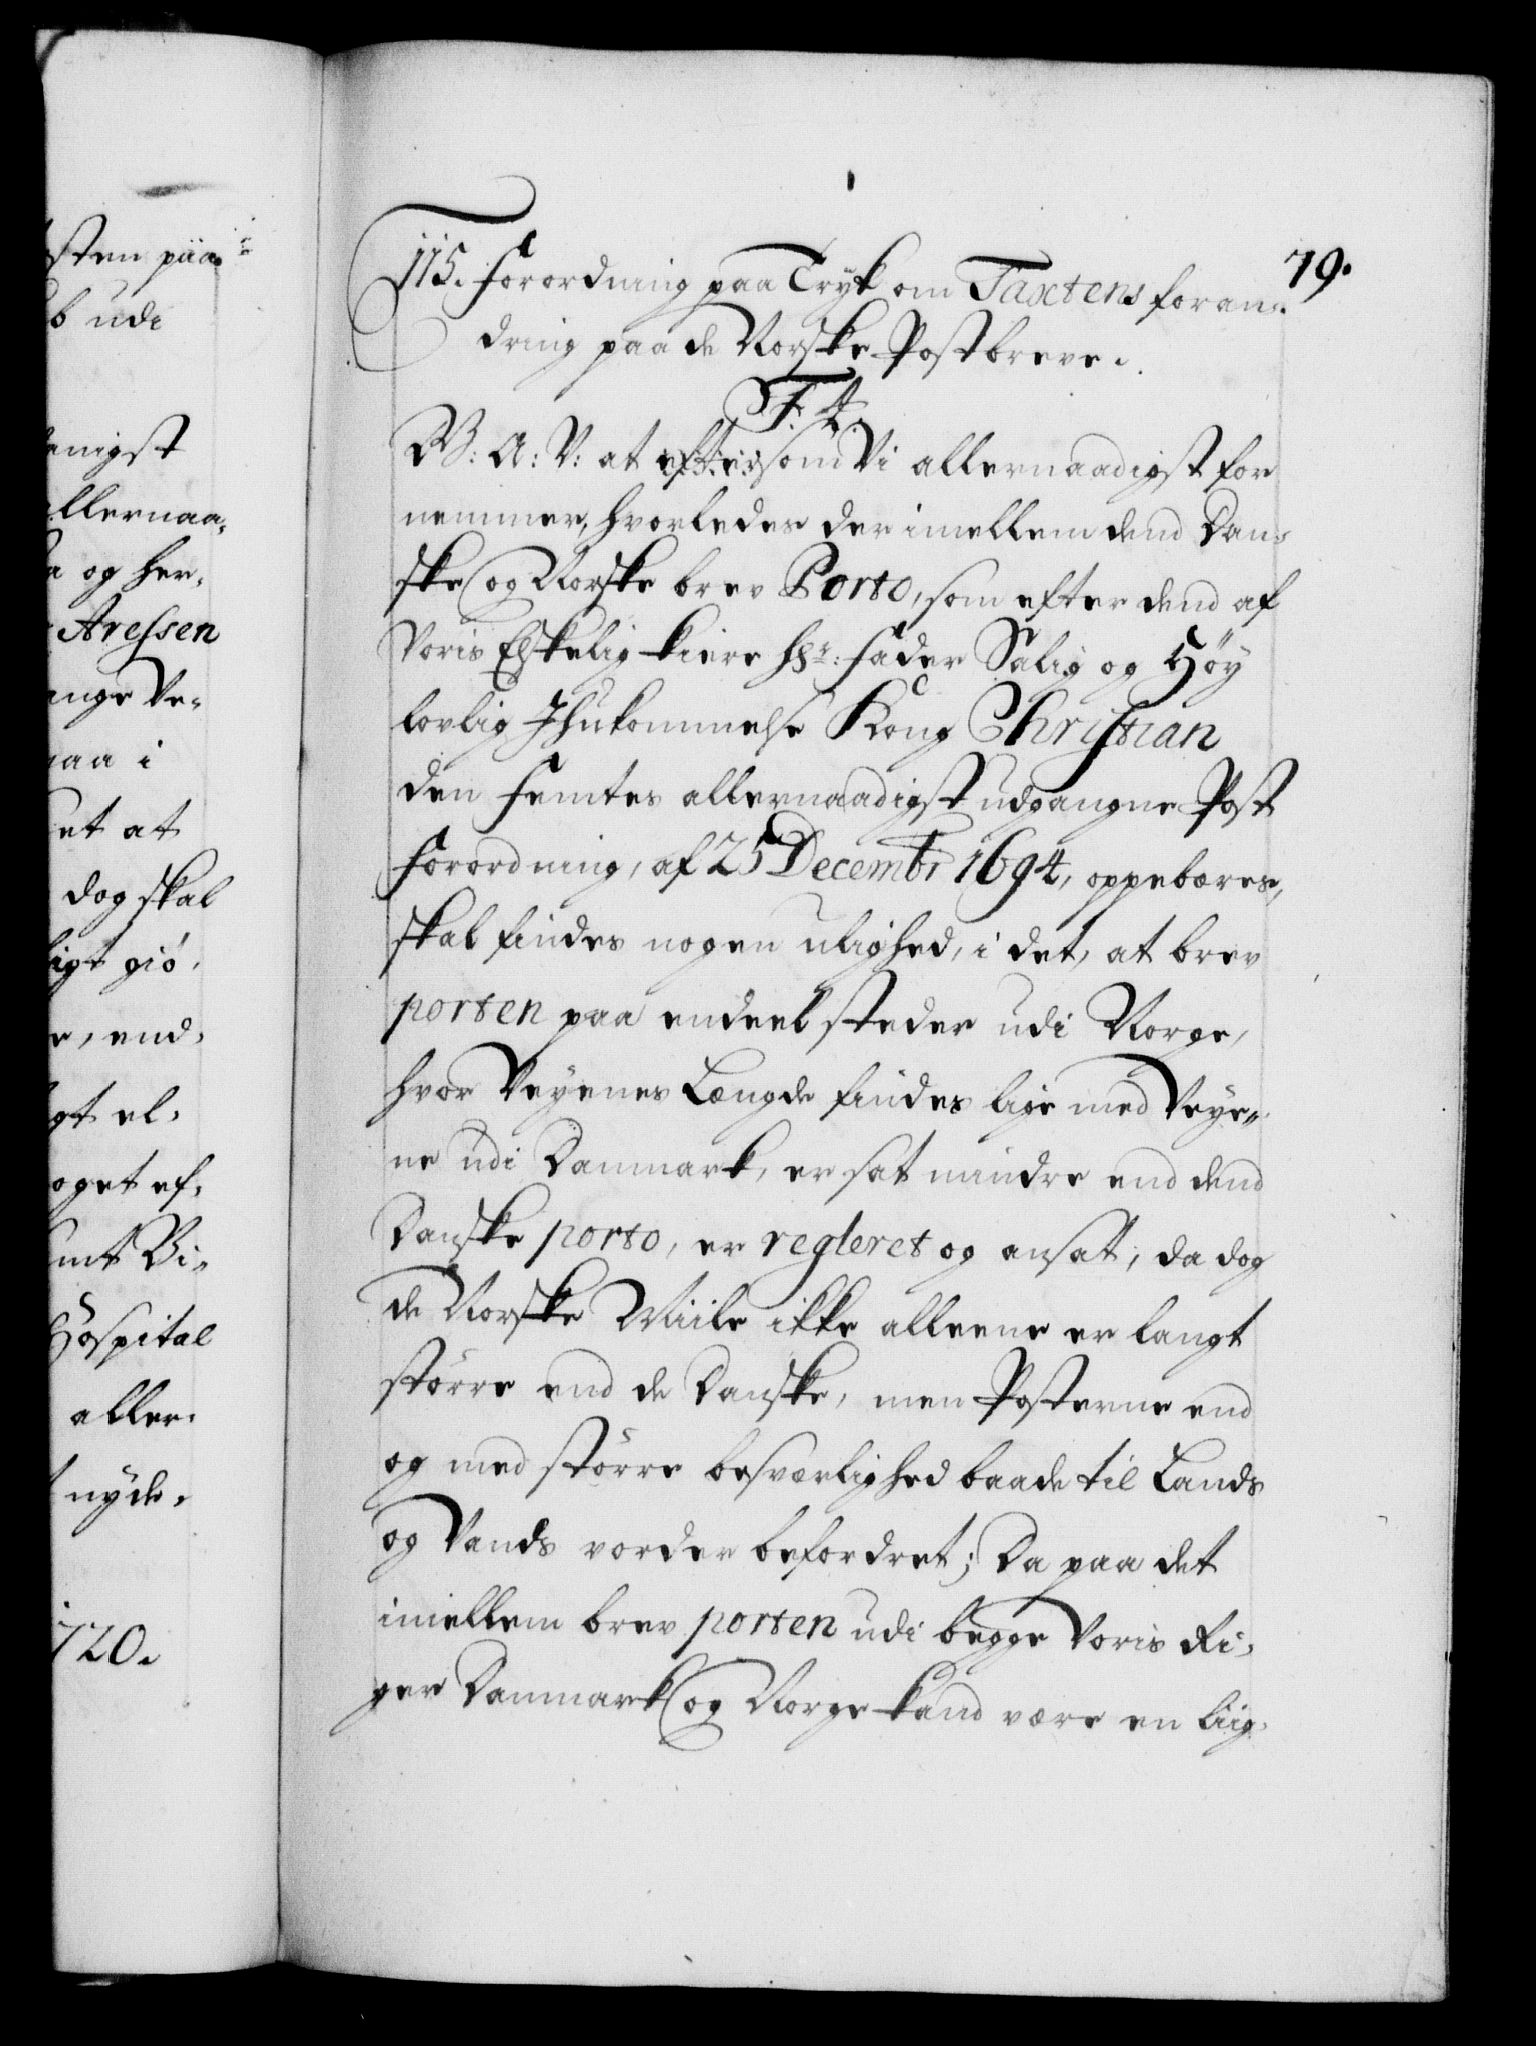 sten paa
b udi
anigst
allernaa,
a og her,
Aressen
ange Ve,
naa i
et at
dog skal
ligt giö,
r, end,
gt el,
oget ef,
mt Bi,
Hospital
aller,
nyde,
1720.
79.
115. Forordning paa Tryk om Taxtens foran,
dring paa de Norske Postbreve.
F. 4.
W: A: V: at eftersom Vi allernaadigst for
nemmer, hvorledes der imellem dend Dan,
ske og Norske brev Porto, som efter dend af
Voris Elskelig kiere Hr: Fader Salig og Höy
lovlig Ihukommelse Kong Christian
den Femtes allernaadigst udgangne Post
Forordning, af 25 Decembr 1694, oppebæres,
skal findes nogen ulighed, i det, at brev
porten paa endeel steder udi Norge,
hvor Veyenes Længde findes lige med Veye,
ne udi Danmark, er sat mindre end dend
Danske porto, er regleret og ansat, da dog
de Norske Miile ikke alleene er langt
större end de Danske, men Posterne end
og med större besværlighed baade til Lands
og Vands vorder befordret; Da paa det
imellem brev porten udi begge Voris Ri,
ger Danmark og Norge kand være en liig,